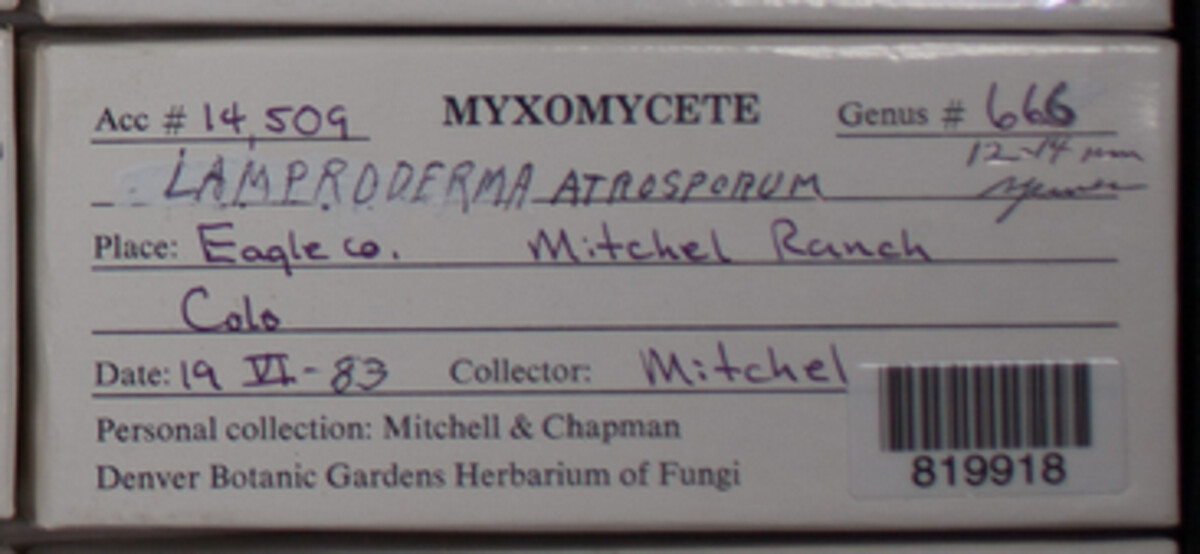 Acc # 14,509 MYXOMYCETE Genus # 666
12-14 mm
LAMPRODERMA ATROSPORUM
Place: Eagle co. Mitchel Ranch
Colo
Date: 19 VI-83 Collector: Mitchel
Personal collection: Mitchell & Chapman
Denver Botanic Gardens Herbarium of Fungi
819918